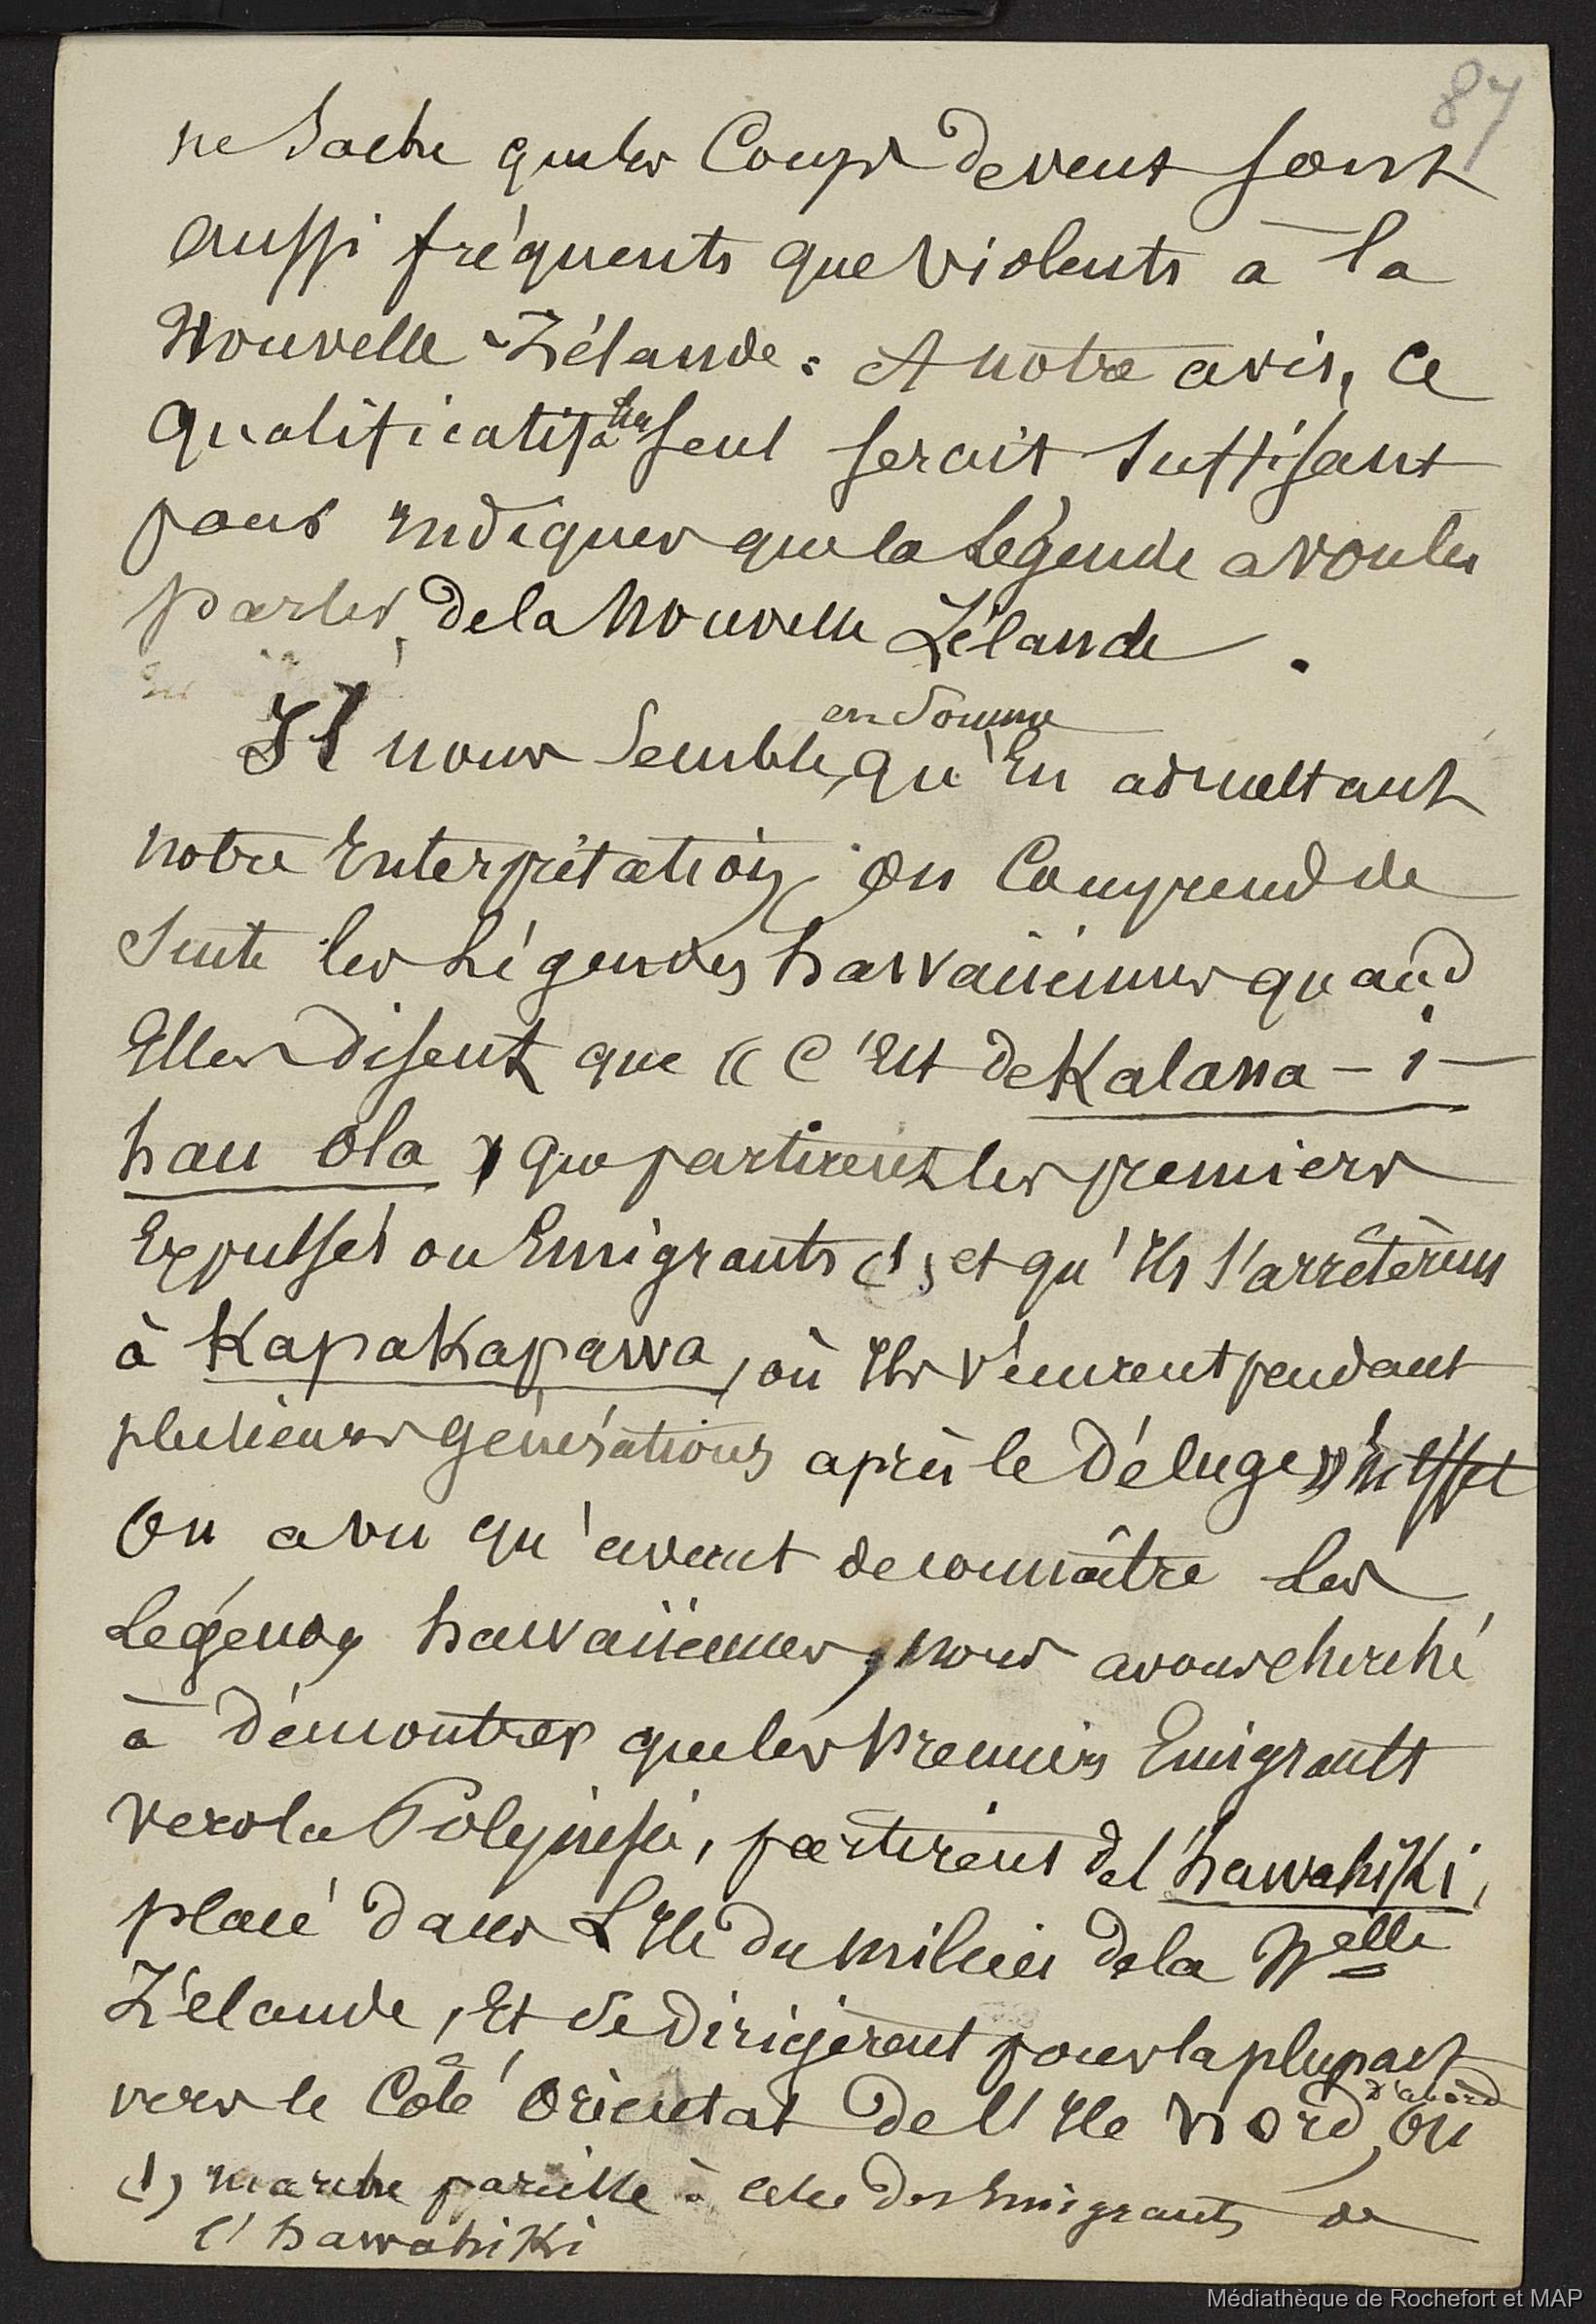 87
ne sache que les Coups de vent sont
aussi fréquents que violents à la
Nouvelle-Zélande. A notre avis, ce
qualificatif à lui seul serait suffisant
pour indiquer que la Légende a voulu
parler, de la Nouvelle Zélande.
Il nous semble, en somme qu'en admettant
notre interprétation, on comprend de
suite les Légendes hawaiiennes quand
Elles disent que « C'est de Kalana-i-
hau ola » que partirent les premiers
Expulsés ou Emigrants (1) et qu'ils s'arrêtèrent
à Kapakapawa, où ils vécurent pendant
plusieurs générations après le Déluge » En effet
On a vu qu'avant de connaître Les
Légendes hawaiiennes, nous avons cherché
à démontrer que les Premiers Emigrants
vers la Polynésie, partirent de l'hawahiki,
placé dans L'Ile du milieu de la Nelle
Zélande, Et se dirigèrent pour la plupart
vers le Côté Oriental de l'Ile Nord d'abord, ou
(1) marche pareille à celle des Emigrants de
l'hawahiki
Médiathèque de Rochefort et MAP